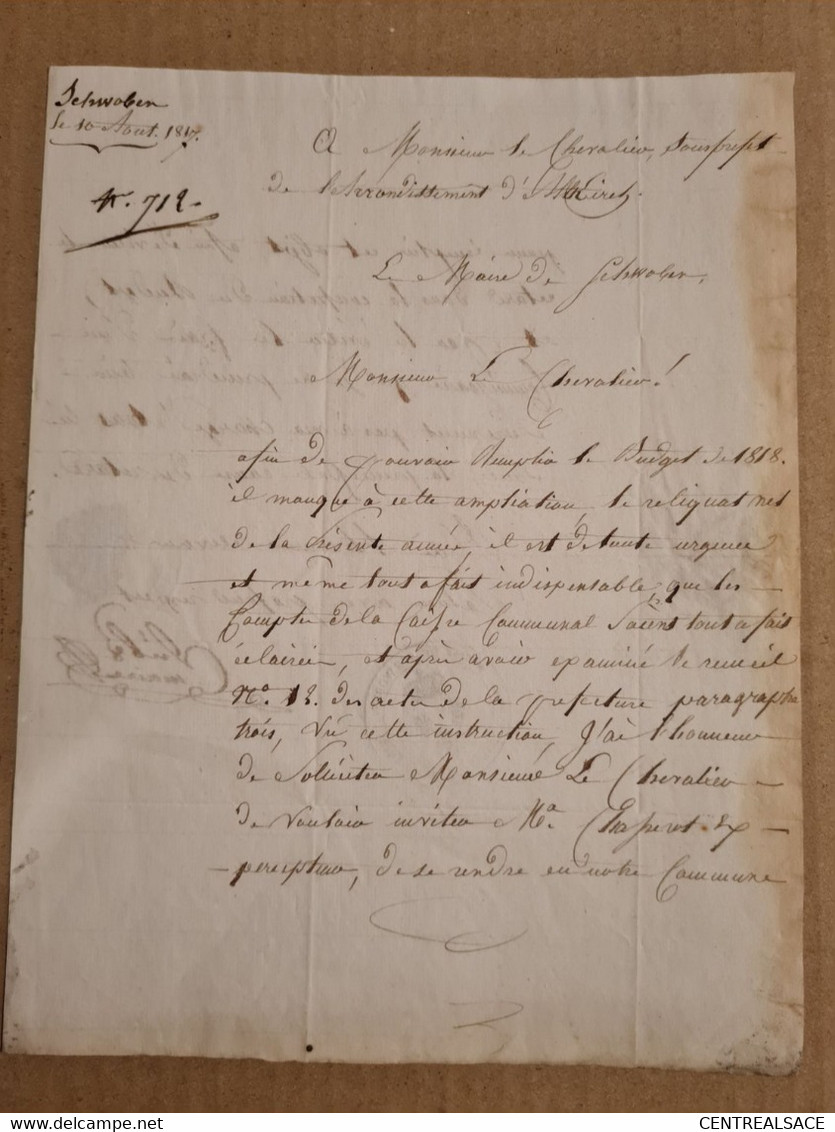 Schwoben
le 10 Aout. 1817.
N.º 712-
A Monsieur le Chevalier, Sousprefet-
de l'arrondissement d'Altkirch.
Le Maire de Schwoben,
Monsieur Le Chevalier!
afin de pouvoir Remplir le Budget de 1818.
il manque à cette ampliation, le reliquat net
de la Présente année, il est de toute urgence
et même tout a fait indispensable, que les -
Compte de la Caisse Communal Soient tout a fait
éclairée, et après avoir examiné le recueil
Nº. 13. des actes de la prefecture paragraphe
trois, Vû cette instruction, J'ai l'honneur
de Solliciter Monsieur Le Chevalier -
de Vouloir inviter Mr. Chaperot Ex -
- percepteur, de se rendre en notre Commune
maire
CENTREALSACE